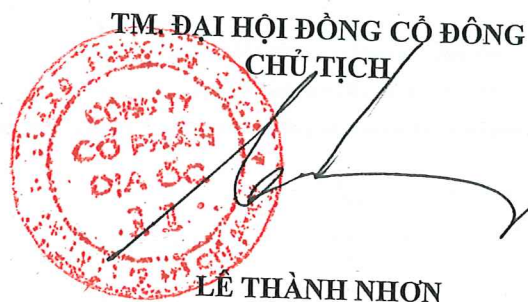 TM. ĐẠI HỘI ĐỒNG CỔ ĐÔNG
CHỦ TỊCH
CÔNG TY
CỔ PHẦN
ĐỊA ỐC
11
LÊ THÀNH NHƠN